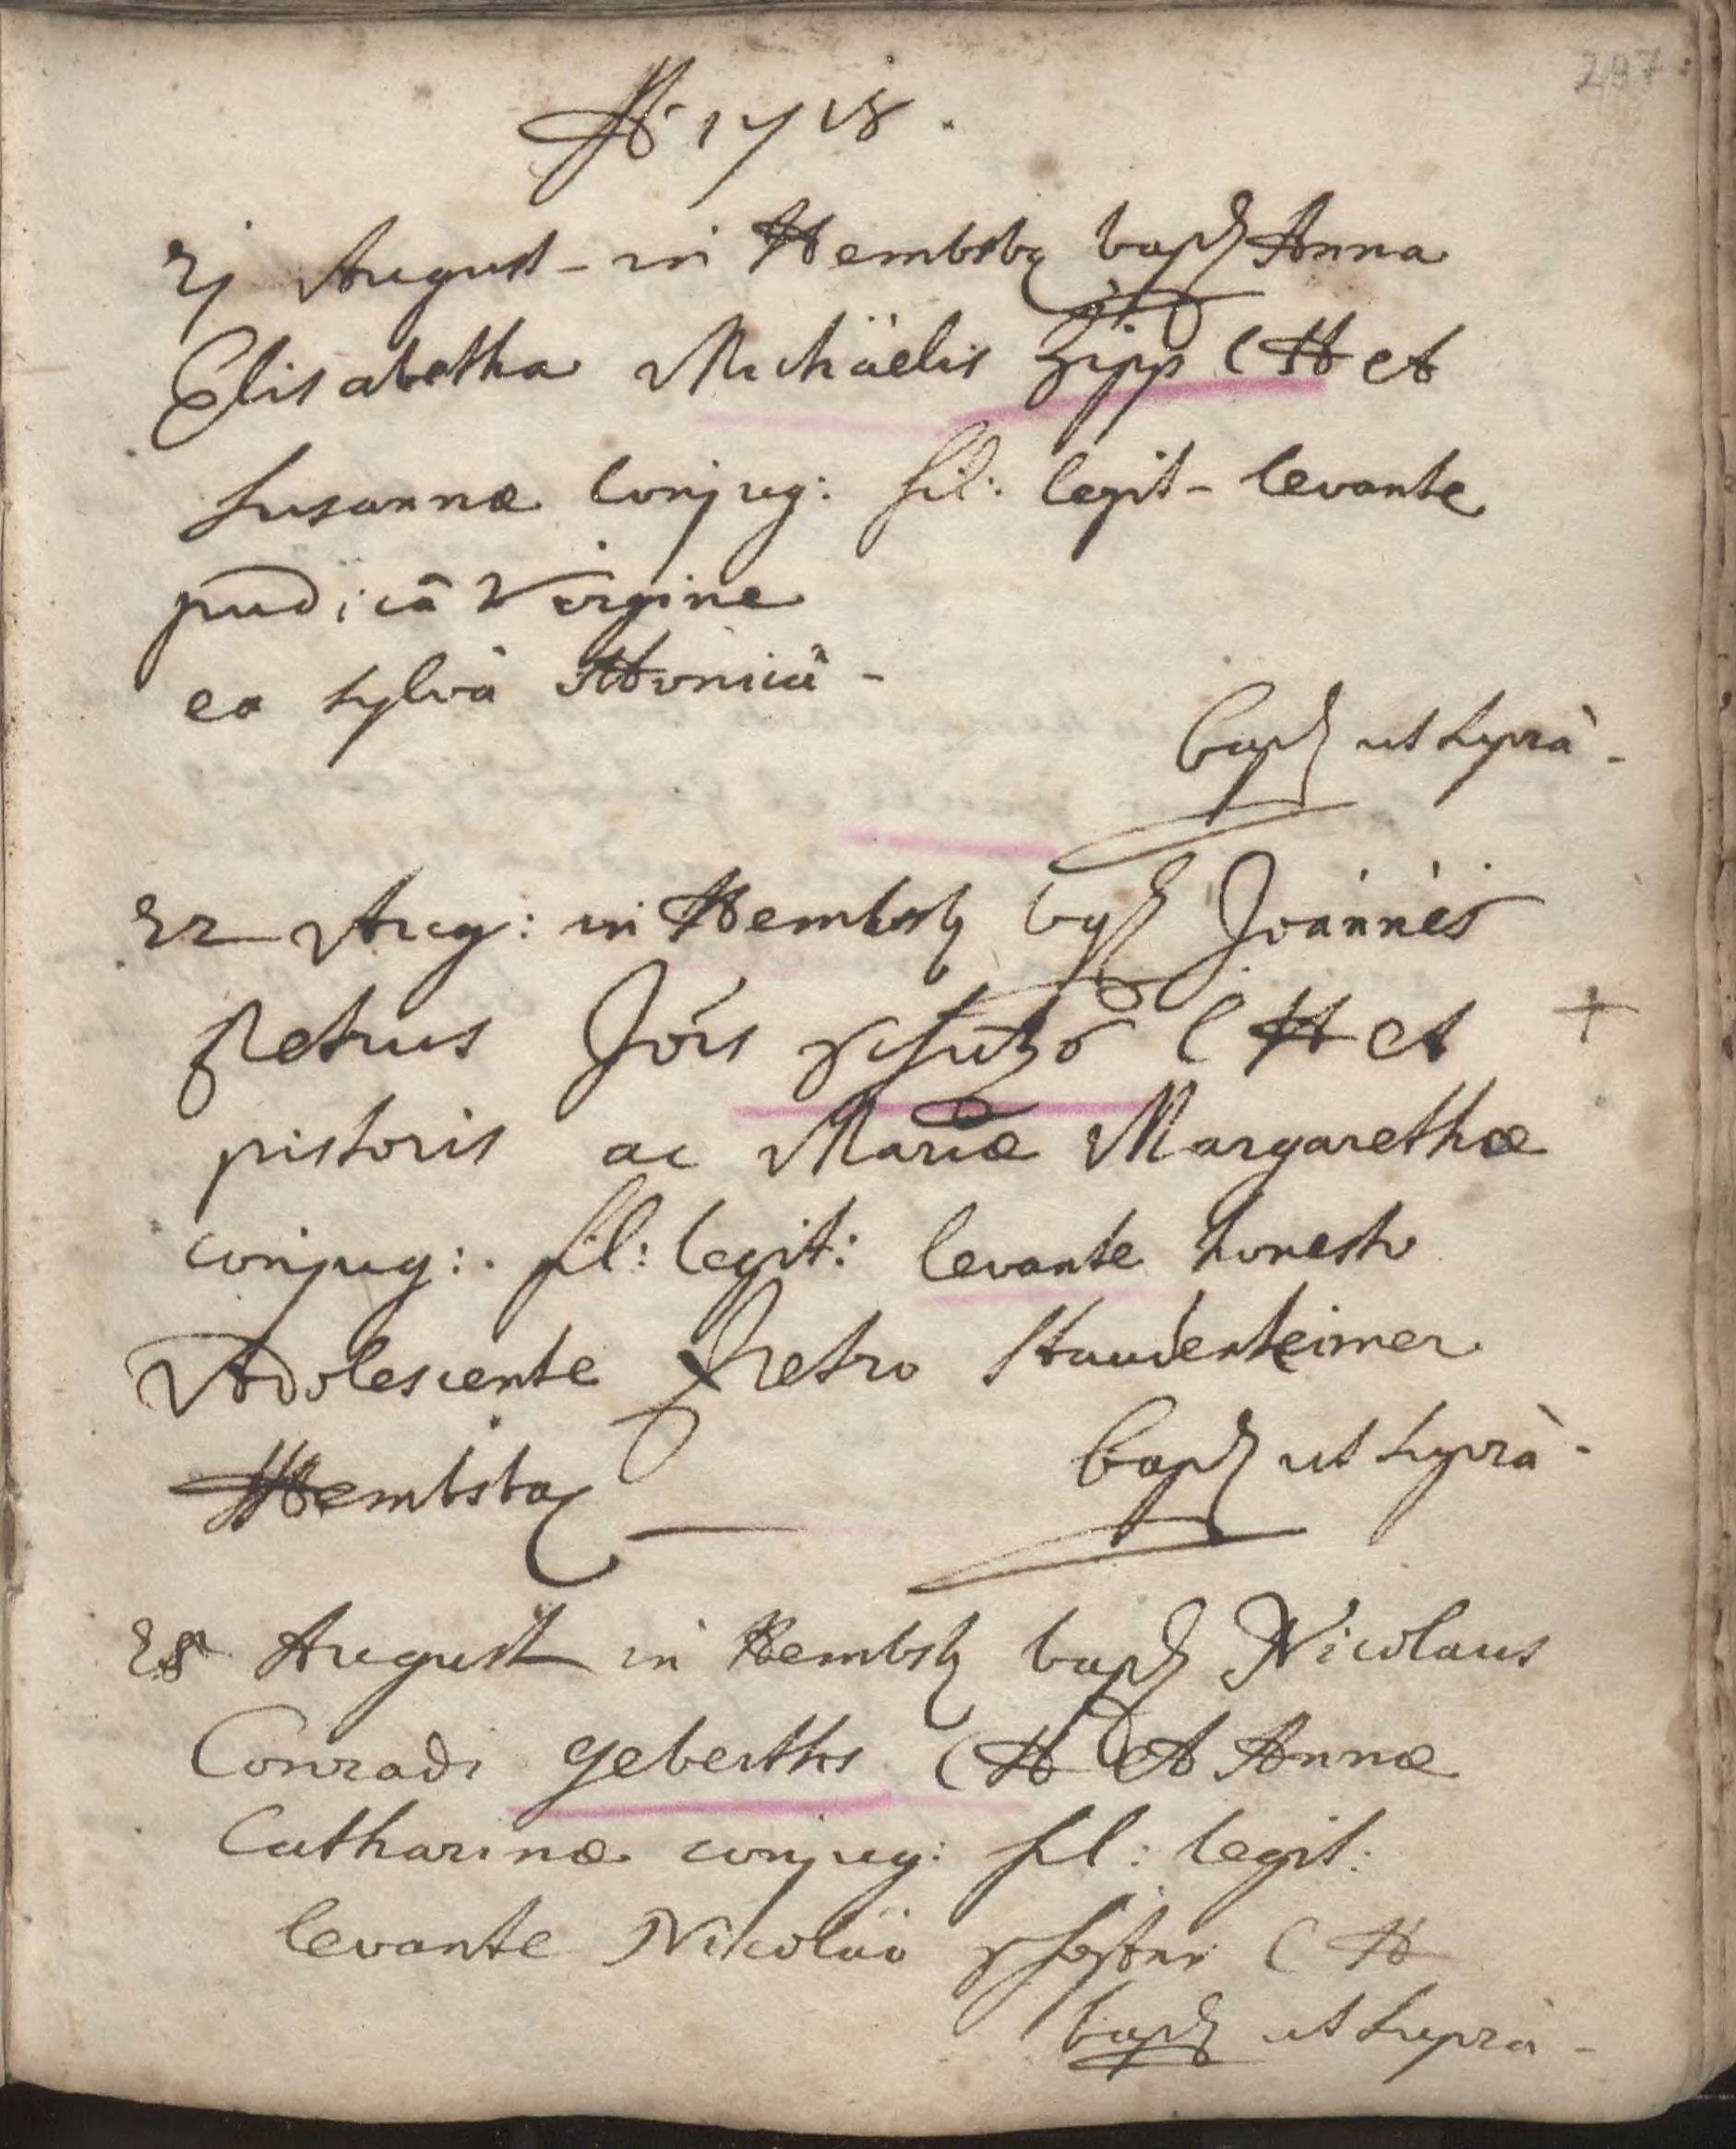 297
Aô 1718.
21 August - in Hembsb. bapt. Anna
Elisabetha Michäelis Zipp C H et
Susannæ Conjug: fil: legit - levante
pudicâ Virgine
ea sylvâ
bapt. ut suprà -
22 Aug: in Hembsb. bapt. Joannes
Petrus Jois C H et +
pistoris ac Mariæ Margarethæ
conjug: fil: legit: levante honesto
Adolescente Petro Staudenheimer
Hembsba
bapt. ut suprà -
28 August in Hembsb. bapt. Nicolaus
Conradi geberths C H et Annæ
Catharinæ conjug: fil: legit:
levante Nicoläo C H
bapt. ut supra -